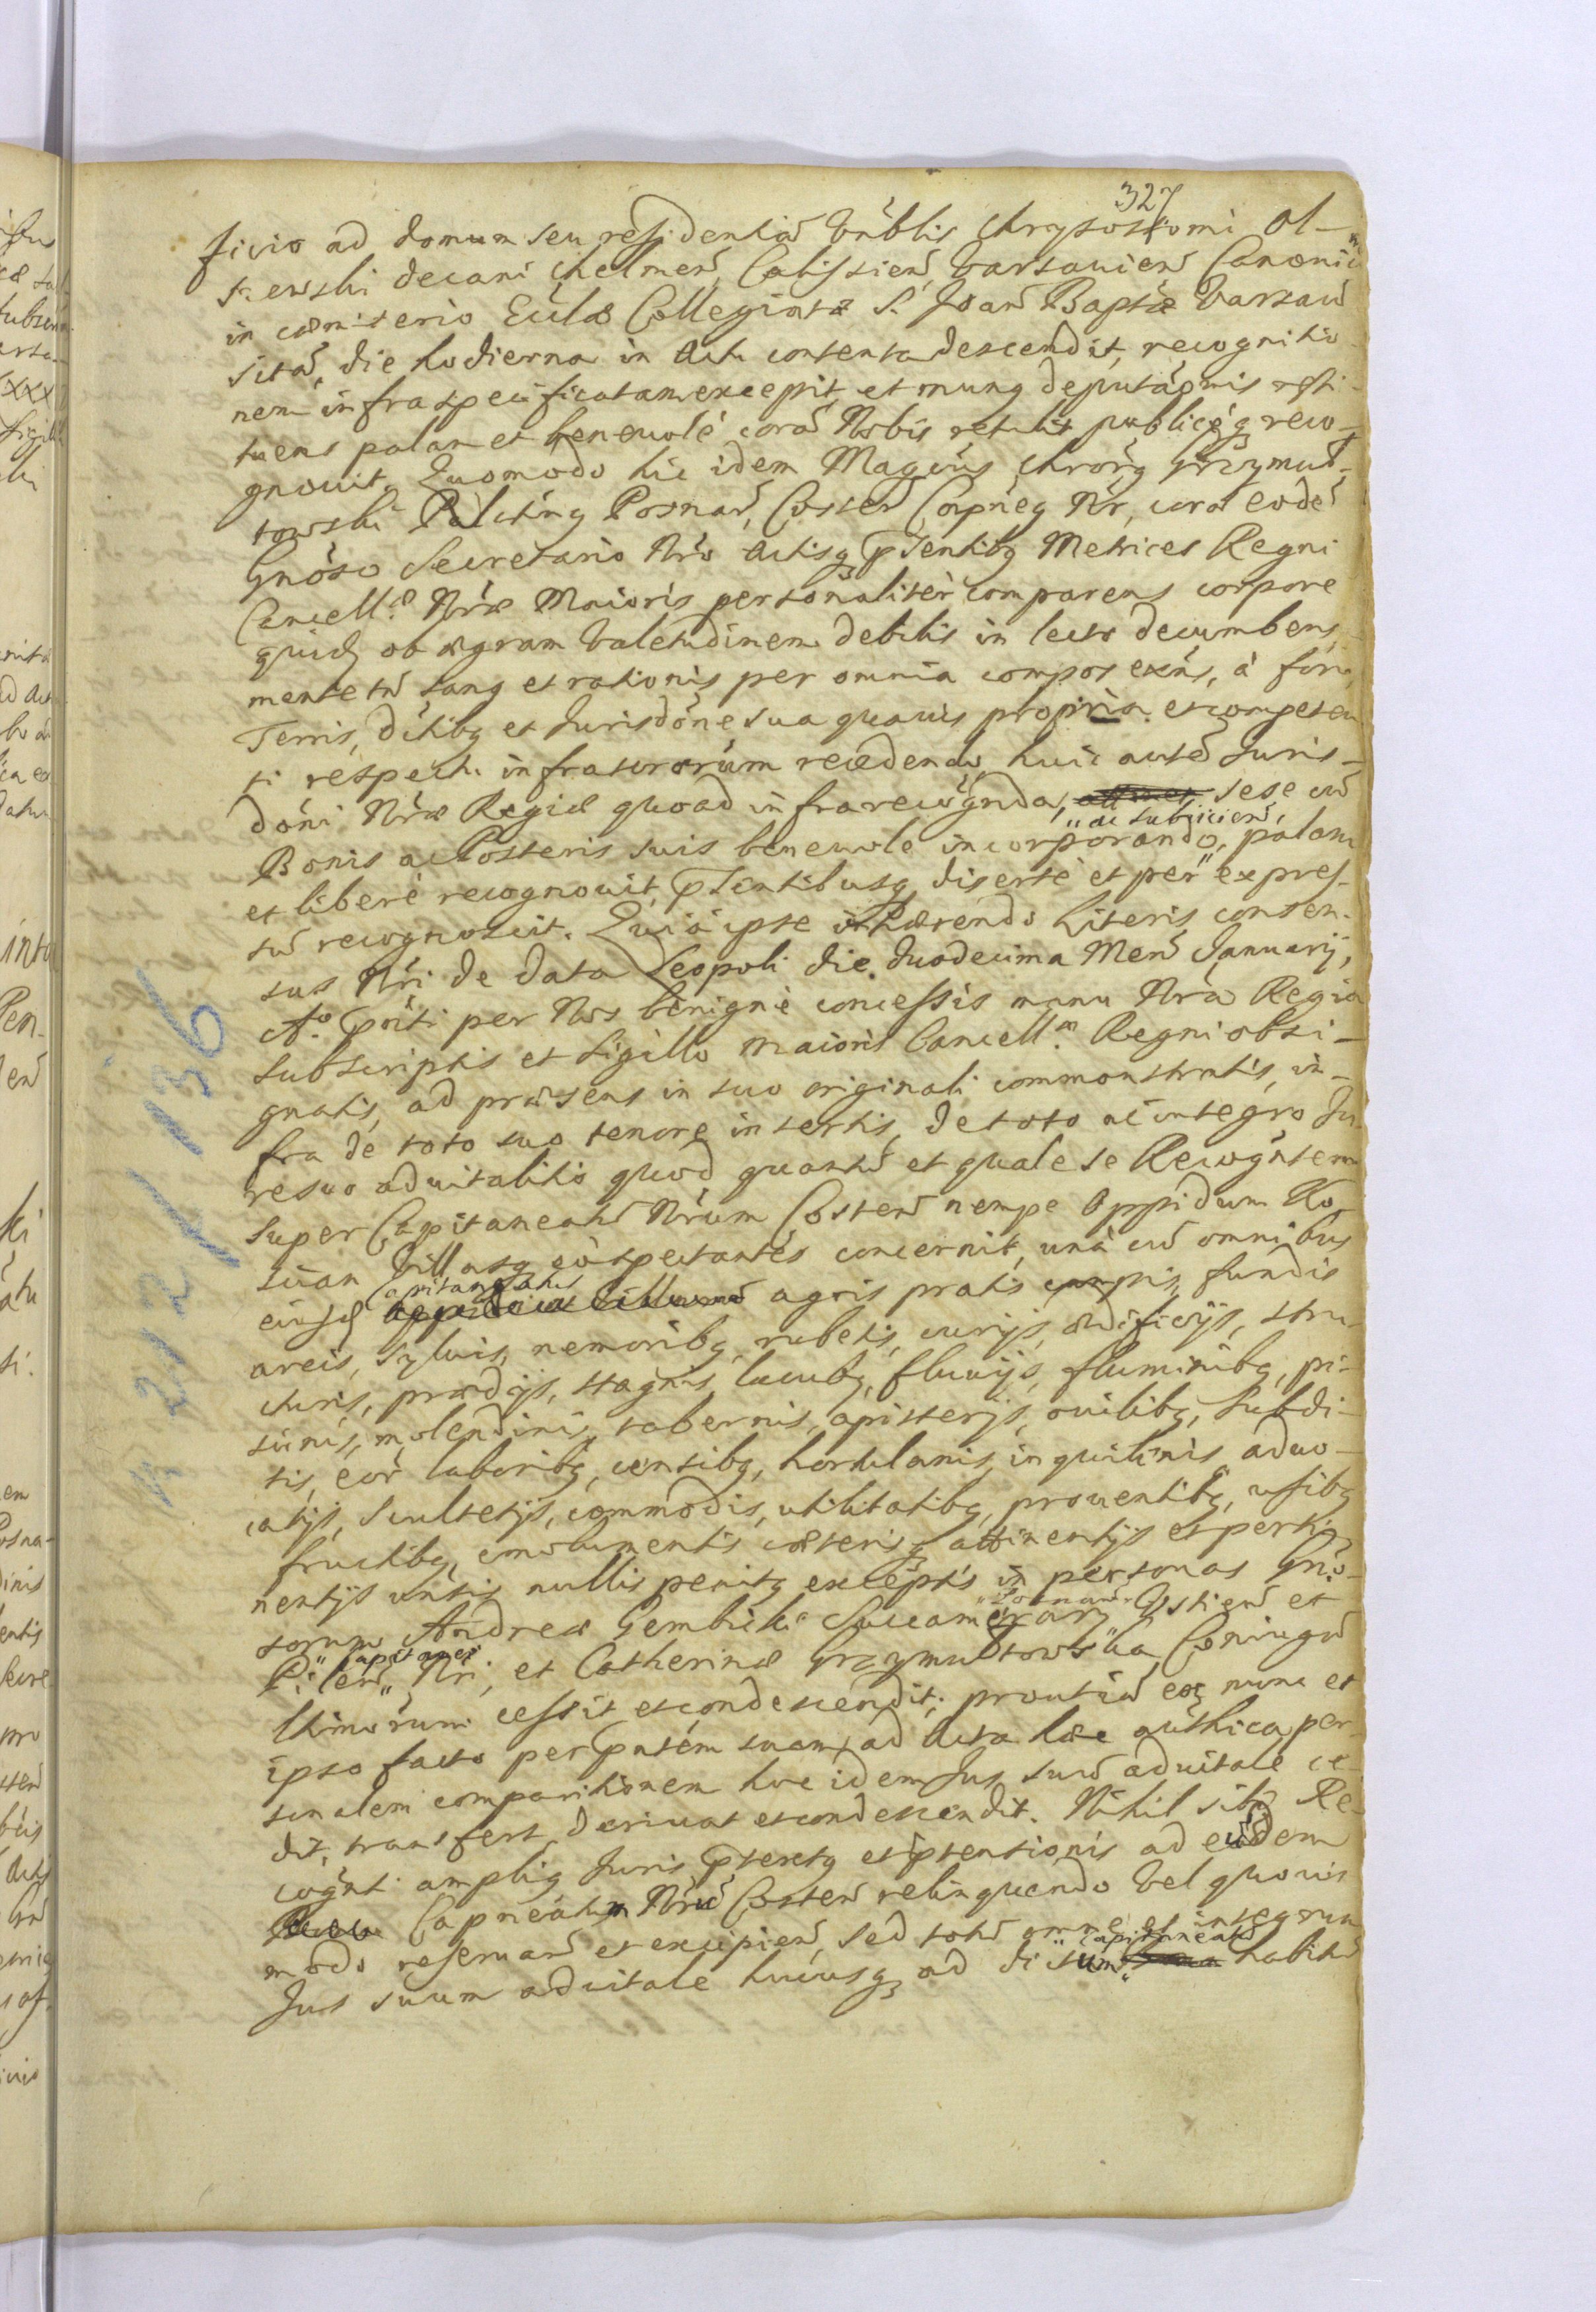 327
ficio ad domum seu residentiã Vnblis Chrysostomi Ol-
szewski decani Chelmeñ, Calissieñ, Varsauieñ Canonici
in cæmiterio Eclæ Collegiatæ S. Joañ Baptæ Varsauⁿ
sitã, die hodierna in Actu contenta descendit, recognitio-
nem infraspecificatam excepit, et munq deputãonis resti-
tuens palam et beneuolè corã Nobis retulit publicéq reco-
gnouit. Quomodo hic idem Magcus Chrorq Grzymuł-
towski Palating Posnañ, Costeñ Capneq Nr, corã eodẽ
Gnóso Secretario Nró Actisq pſentibq Metrices Regni
Cancellæ Nræ Maioris personalitèr comparens corpore
quidẽ ob ægram Valetudinem debilis in lecto decumbens,
mente tñ sanq et rationis per omnia compos exñs, à foro,
Terris, dítibq et Jurisdóne sua quauis propria et competen
ti respectu infrascrorúm recedendo, huic autẽ Juris-
dóni Nræ Regiæ quoad infrarecógnda, sese cũ
"ac subijcieñ,
Bonis ac Posteris suis beneuole incorporando, palam
et liberè recognouit, pſentibusq disertè et per expres-
sũ recognoscit. Quià ipse inhærendo Literis consen-
sus Nri de data Leopoli die duodecima Mensⁿ Januarij,
Aº prñti per Nos benignè concessis manu Nrã Regia
subscriptis et Sigillo maioris Cancellæ Regni obsi-
gnatis, ad præsens in suo originali commonstratis, in-
fra de toto suo tenore insertis, de toto ac integro Ju
re suo aduitalitio quod quantũ et quale se Recogntem
super Capitaneatũ Nrum Costeñ nempe Oppidum Ko-
scian Villasq eò spectantes concernit, unà cũ omnibus
Capitaneatus
eiusdẽ agris pratis campis, fundis
areis, syluis, nemoribq, rubetis, curijs, ædificijs, stru-
cturis, prædijs, stagnis, lacubq, fluuijs, fluminibq, pi-
scinis, molendinis, tabernis, apisterijs, ouilibq, Subdi-
tis, eor laboribq, censibq, hortulanis, inquilinis, aduo-
catijs, Scultetijs, commodis, utilitatibq, prouentibq, usibq
fructibq, emolumentis cæterisq attinentijs et perti-
nentijs untis nullis penitq exceptis in personas Gno-
"Posnañ
sorum Andreæ Gembicki Succamerarij Costieñ et
"Capitanei
Pileñ" Nri, et Catherinæ Grzymułtowska Coniugũ
ltimorum cessit et condescendit; prout iã ex nunc et
ipso facto per pntém suam ad Acta hæc aúthica per-
sonalem comparitionem hoc idem Jus suũ aduitale ce-
dit, transfert, deriuat et condescendit. Nihil sibi Re-
cognt. ampliq Juris ptextq et ptentionis ad eundem
Capneátum Nrũ Costeñ relinquendo Vel quouis
modo reseruañ et excipieñ, sed totũ omne et integrum
"Capitaneatũ
Jus suum aduitale hucusq ad dictum" habitũ